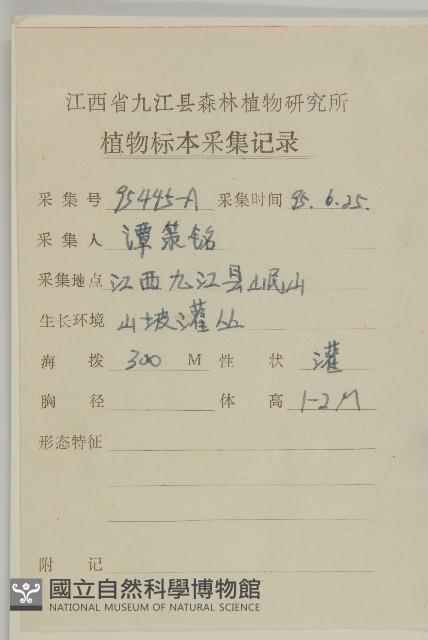 江西省九江县森林植物研究所
植物标本采集记录
采集号 95445-A 采集时间 95.6.25.
采集人 谭策铭
采集地点 江西九江县岷山
生长环境 山坡灌丛
海拨 300 M 性状 灌
胸径 体高 1-2M
形态特征
附记
國立自然科學博物館
NATIONAL MUSEUM OF NATURAL SCIENCE